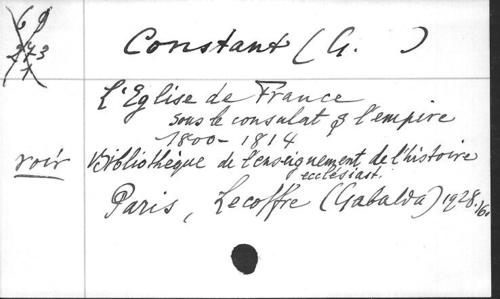 69
273
1
Constant (G. )
L'Eglise de France
sous le consulat & l'empire
1800-1814
voir Bibliothèque de l'enseignement de l'histoire
ecclésiast.
Paris, Lecoffre (Gabalda) 1928.